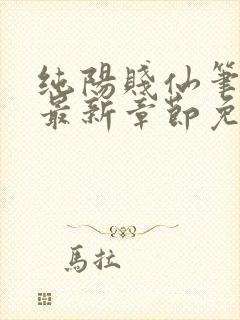 純陽賤仙筆
最新章節免
馬拉